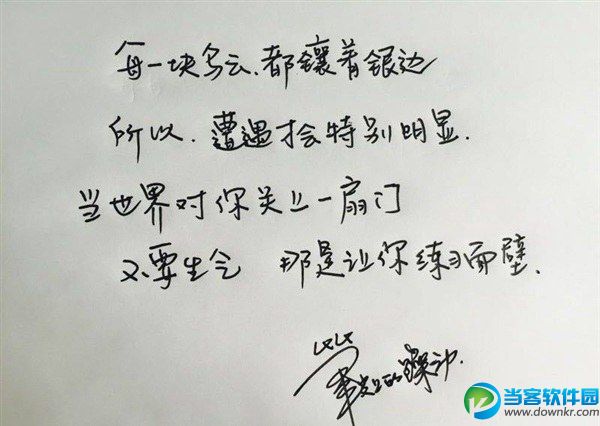 每一块乌云、都镶着银边
所以、遭遇才会特别明显.
当世界对你关上一扇门
不要生气 那是让你练习面壁.
的躁动.
当客软件园
www.downkr.com